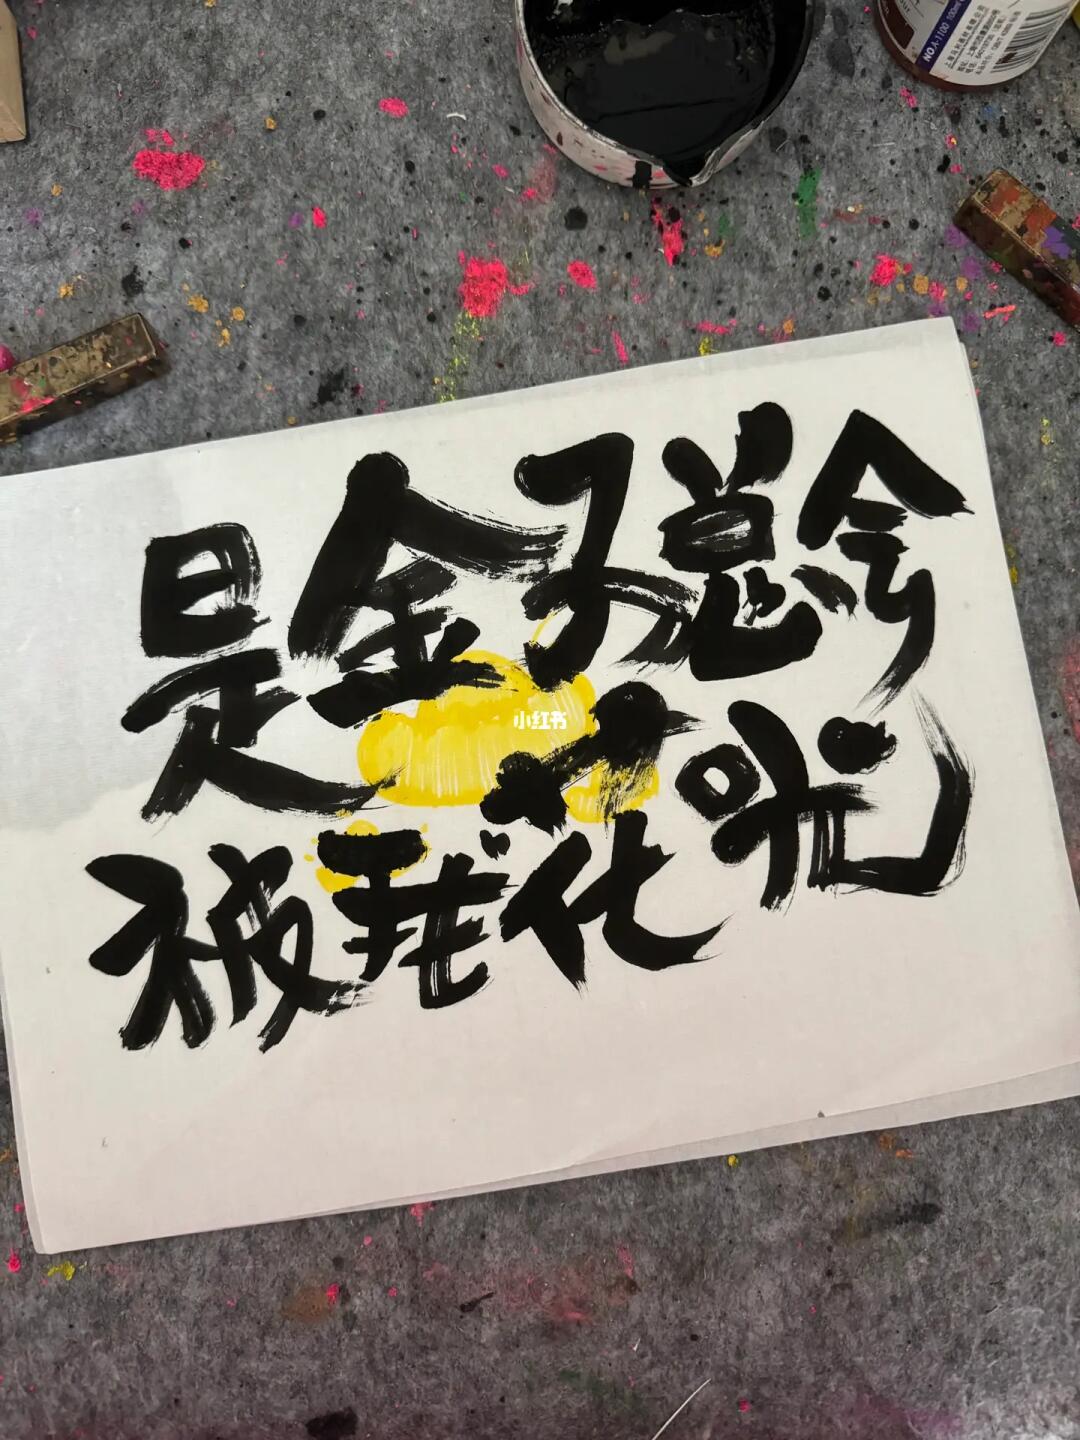 NO.A-1100 100ml
是金子总会
小红书
被我花光